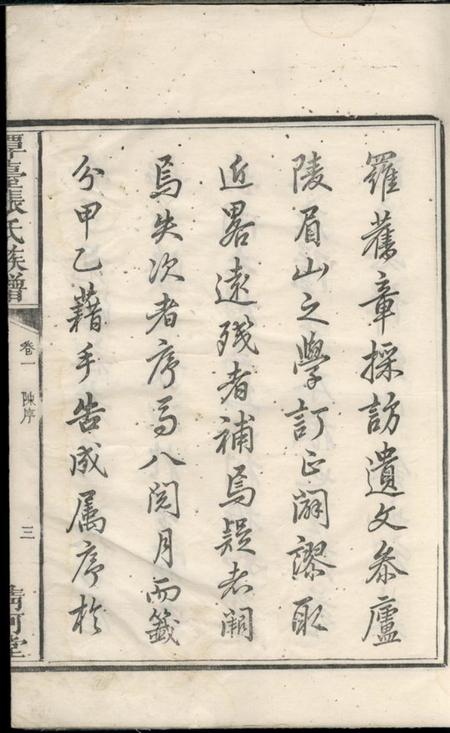 羅舊章採訪遺文叅廬
陵眉山之學訂正闢謬取
近畧遠殘者補焉疑者闕
焉失次者序焉八閱月而籖
分甲乙藉手告成属序於
張氏族譜
卷一 陳序
三
清河堂